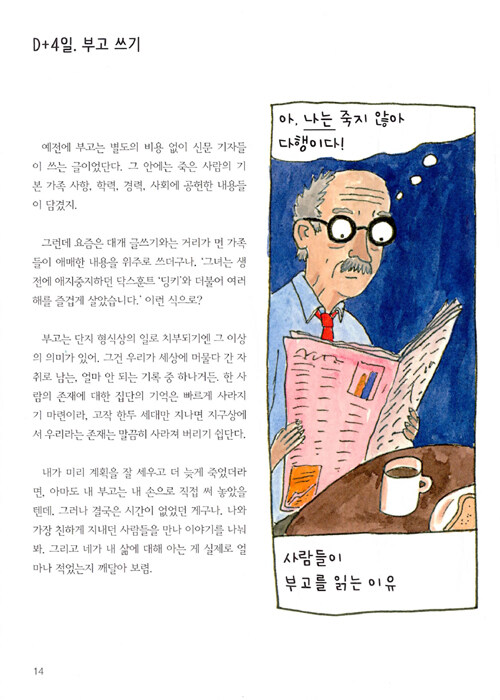 D+4일. 부고 쓰기
예전에 부고는 별도의 비용 없이 신문 기자들
이 쓰는 글이었단다. 그 안에는 죽은 사람의 기
본 가족 사항, 학력, 경력, 사회에 공헌한 내용들
이 담겼지.
그런데 요즘은 대개 글쓰기와는 거리가 먼 가족
들이 애매한 내용을 위주로 쓰더구나. ‘그녀는 생
전에 애지중지하던 닥스훈트 ‘딩키’와 더불어 여러
해를 즐겁게 살았습니다.’ 이런 식으로?
부고는 단지 형식상의 일로 치부되기엔 그 이상
의 의미가 있어. 그건 우리가 세상에 머물다 간 자
취로 남는, 얼마 안 되는 기록 중 하나거든. 한 사
람의 존재에 대한 집단의 기억은 빠르게 사라지
기 마련이라, 고작 한두 세대만 지나면 지구상에
서 우리라는 존재는 말끔히 사라져 버리기 쉽단다.
내가 미리 계획을 잘 세우고 더 늦게 죽었더라
면, 아마도 내 부고는 내 손으로 직접 써 놓았을
텐데. 그러나 결국은 시간이 없었던 게구나. 나와
가장 친하게 지내던 사람들을 만나 이야기를 나눠
봐. 그리고 네가 내 삶에 대해 아는 게 실제로 얼
마나 적었는지 깨달아 보렴.
아, 나는 죽지 않아
다행이다!
사람들이
부고를 읽는 이유
14